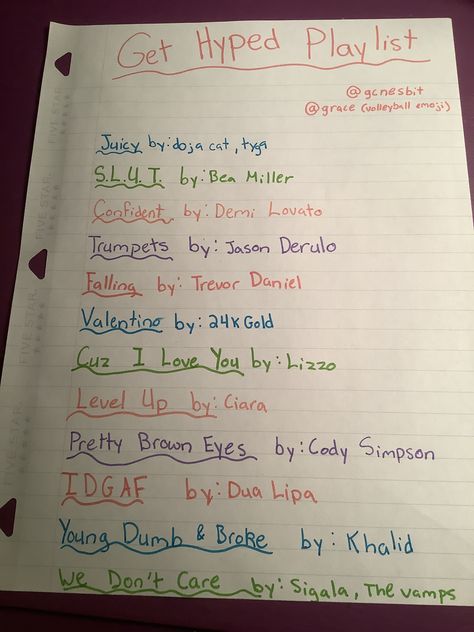 Get Hyped Playlist
@gcnesbit
@grace (volleyball emoji)
Juicy by: doja cat, tyga
S.L.U.T. by: Bea Miller
Confident by: Demi Lovato
Trumpets by: Jason Derulo
Falling by: Trevor Daniel
Valentino by: 24k Gold
Cuz I Love You by: Lizzo
Level Up by: Ciara
Pretty Brown Eyes by: Cody Simpson
IDGAF by: Dua Lipa
Young Dumb & Broke by: Khalid
We Don't Care by: Sigala, The vamps
FIVE STAR
FIVE STAR
FIVE STAR
FIVE STAR